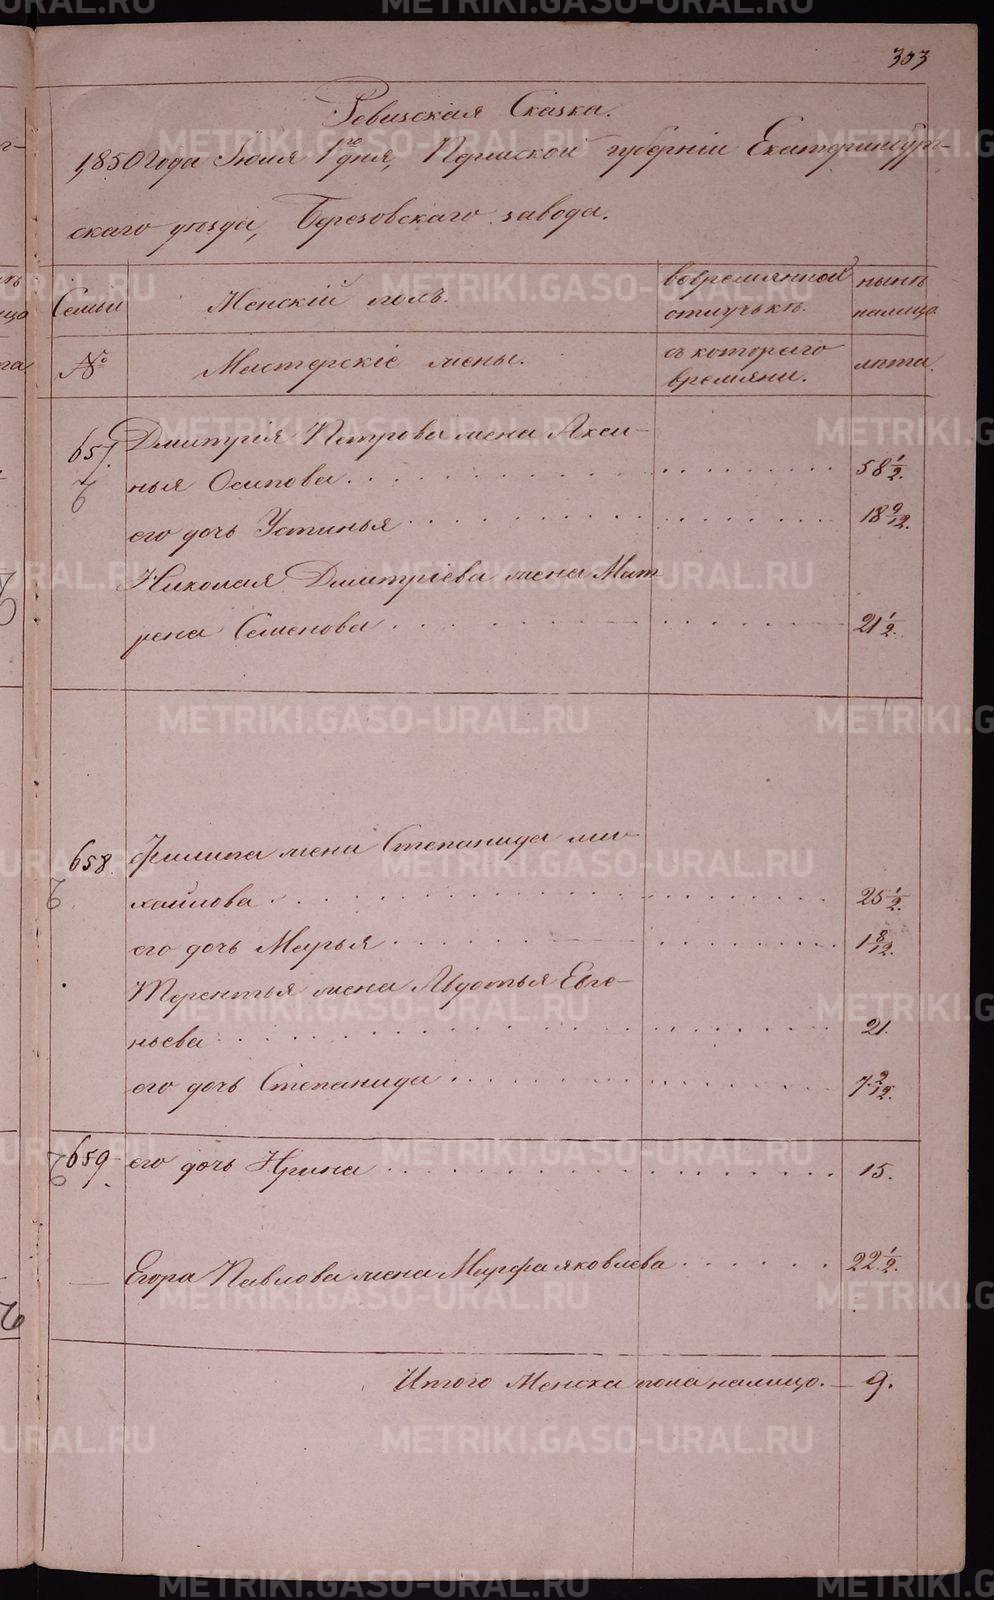 303
Ревизская Сказка.
1850 года Июля 1го дня, Пермской губернии Екатеринбург-
скаго уезда, Березовскаго завода.
Семьи
Женский полъ.
во временной отлучкѣ.
нынѣ на лицо
№
Мастерские жены.
съ котораго времяни.
лѣта.
657. Дмитрия Петрова жена Аксе-
нья Осипова 58 1/2.
его дочь Устинья 18 9/12.
Николая Дмитриева жена Мат
рена Семенова 21 1/2.
658. Филипа жена Степанида ми-
хайлова 25 1/2.
его дочь Марья 1 8/12.
Терентья жена Авдотья Евге-
ньева 21.
его дочь Степанида 7 2/12.
659. его дочь Ирина 15.
Егора Павлова жена Марфа яковлева 22 1/2.
Итого Женска пола налицо. – 9.
METRIKI.GASO-URAL.RU